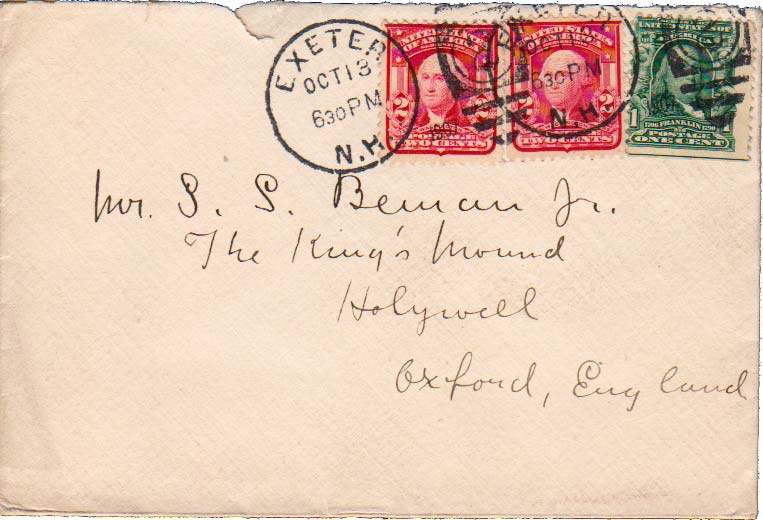 EXETER
OCT 13
630 PM
N.H.
UNITED STATES
OF AMERICA
2 2
POSTAGE
TWO CENTS
UNITED STATES
OF AMERICA
2 2
POSTAGE
TWO CENTS
EXETER
630 PM
N.H.
STATES OF
AMERICA
1
1706 FRANKLIN 1790
POSTAGE
ONE CENT
Mr. S. S. Beman Jr.
The King's Mound
Holywell
Oxford, England